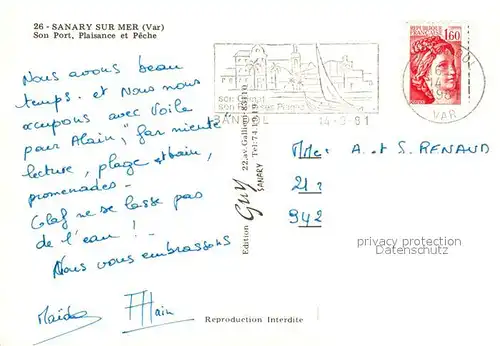 26 - SANARY SUR MER (Var)
Son Port, Plaisance et Pêche
Nous avons beau
temps. et Nous nous
occupons avec Voile
pour Alain, "far niente"
lecture, plage et bain,
promenades -
Olaf ne se lasse pas
de l'eau ! -
Nous vous embrassons
Alain
Edition GUY
22, av. Gallieni 83110
SANARY Tel: 74.19.19
Reproduction Interdite
BANDOL 14-9-81
REPUBLIQUE FRANÇAISE
1,60
VAR
A. et S. RENAUD
privacy protection
Sammlerstuecke.com